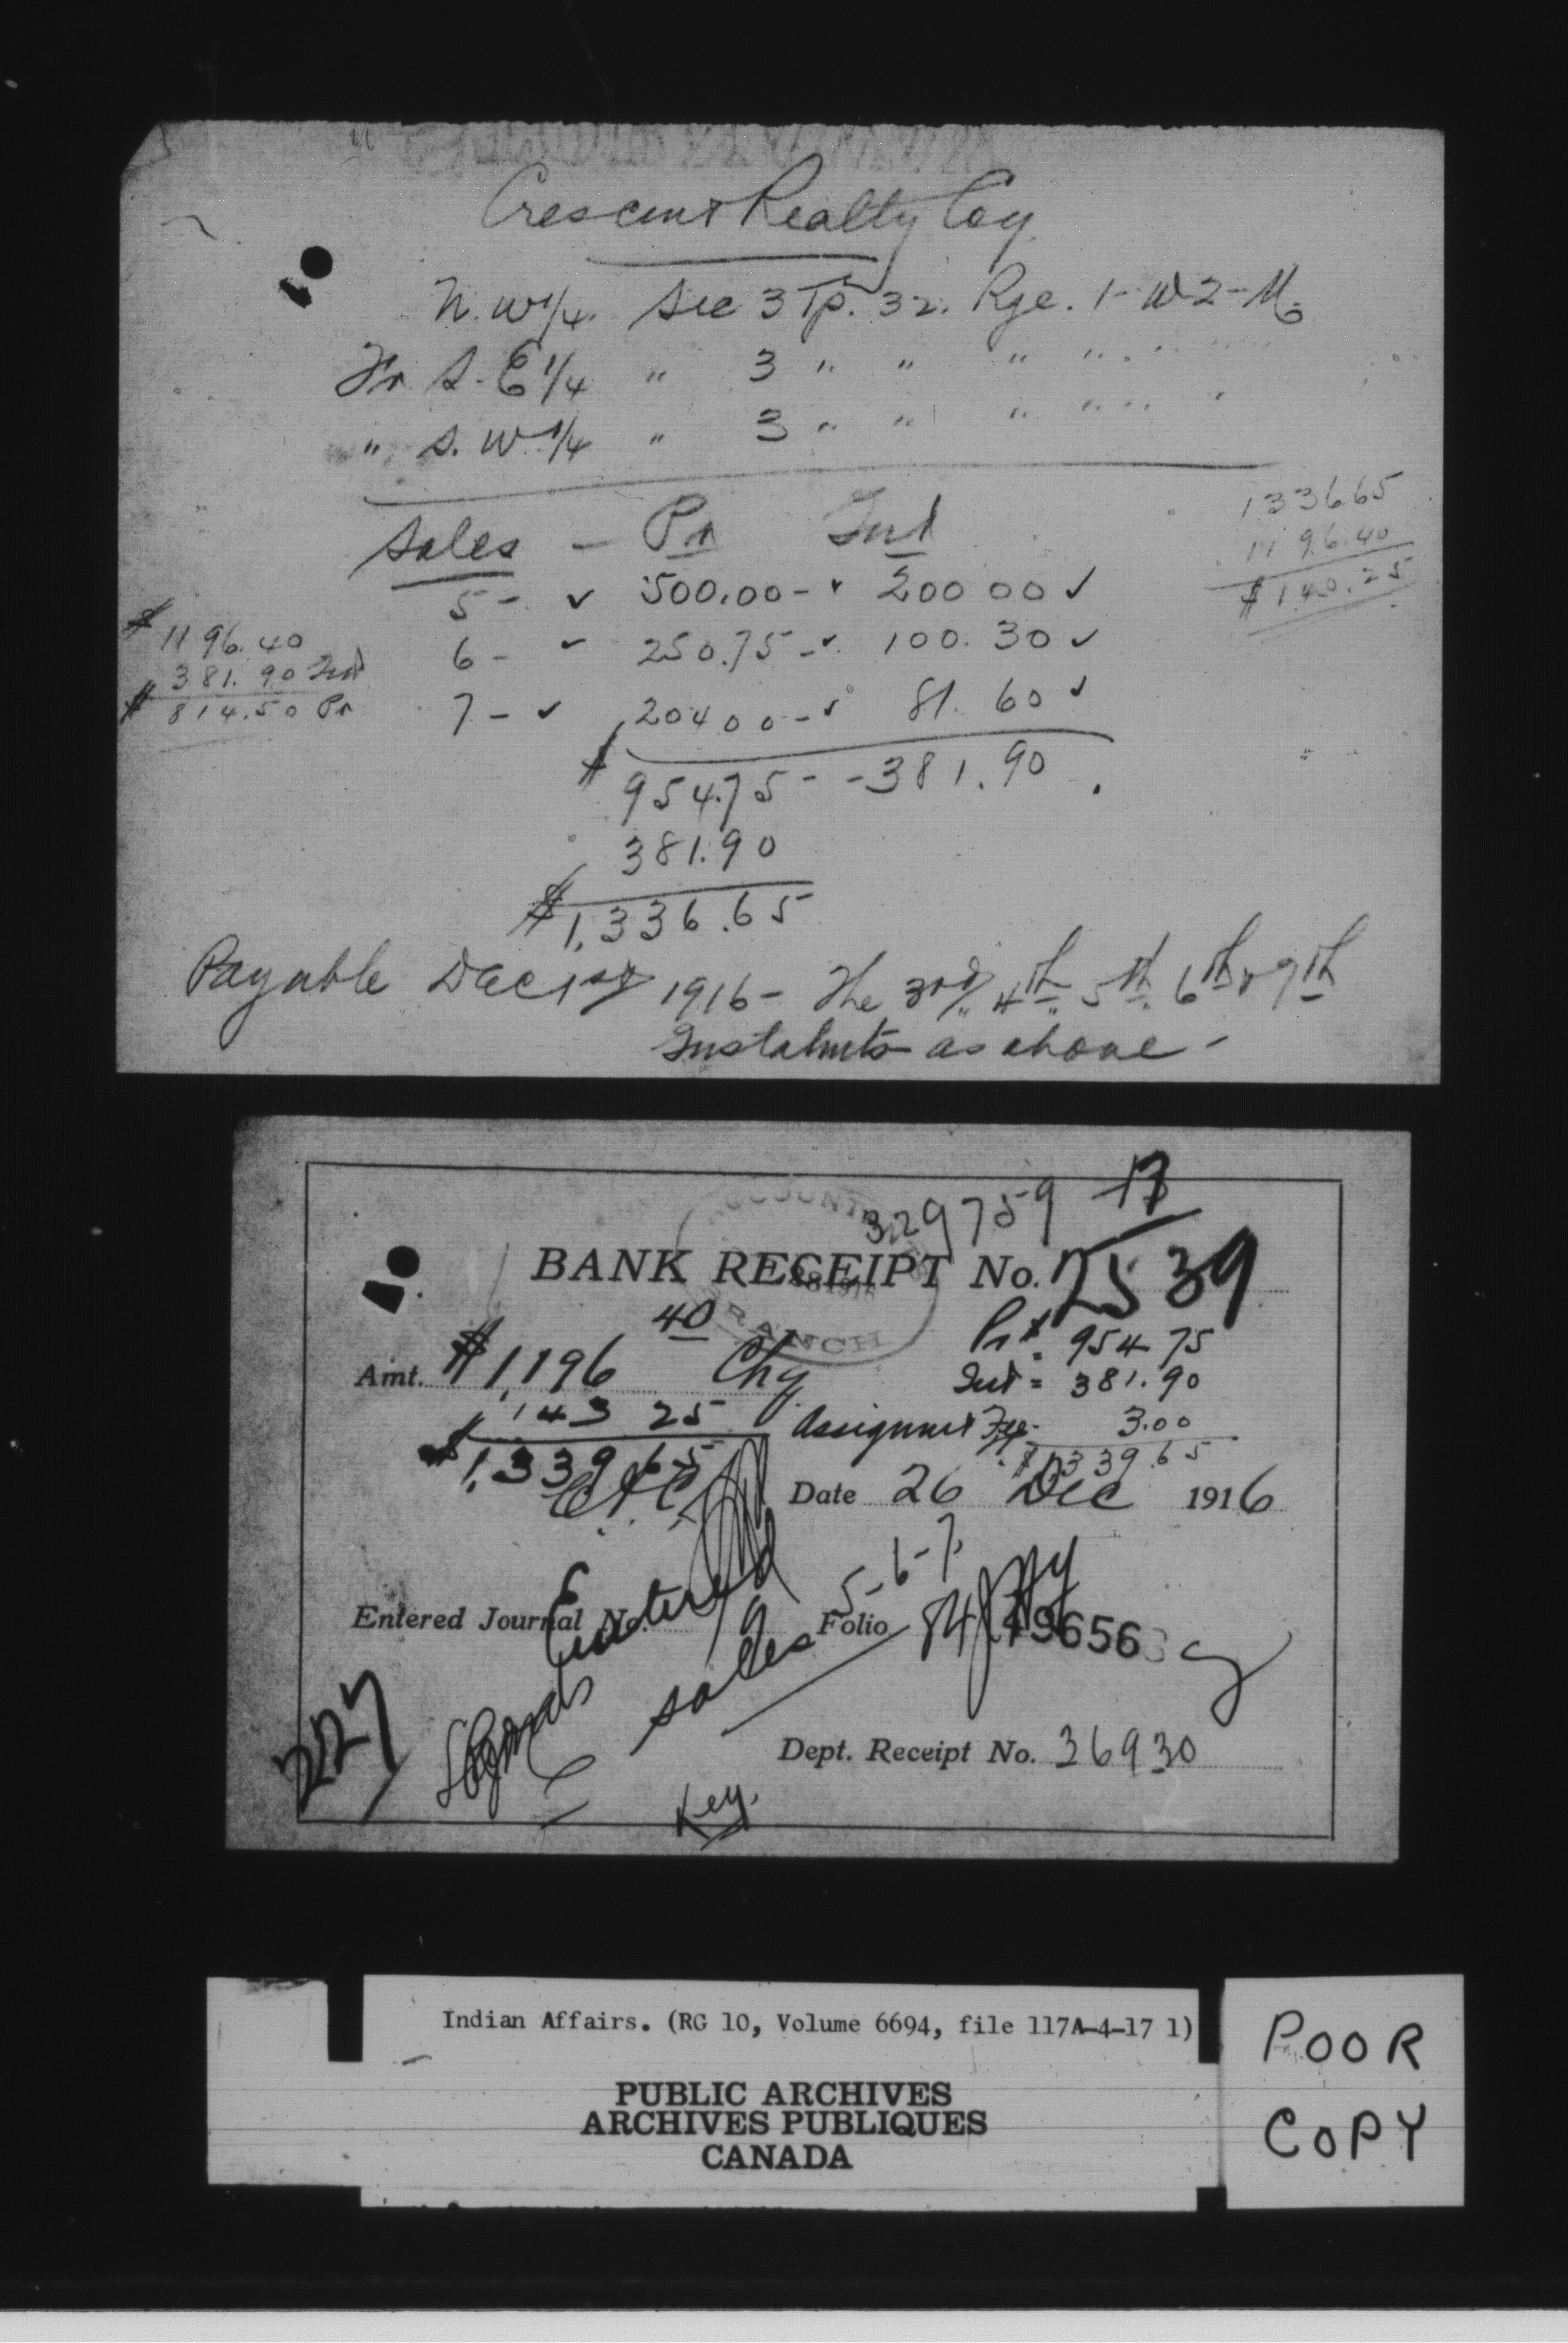 Crescent Realty Coy.
N. W 1/4. Sec 3 Tp. 32. Rge. 1 - W 2 - M.
Fr S. E 1/4 " 3 " " " " " "
" S. W 1/4 " 3 " " " " " "
Sales - Pr Int
5 - ✓ 500.00 - ✓ 200 00 ✓
6 - ✓ 250.75 - ✓ 100. 30 ✓
7 - ✓ 204 00 - ✓ 81. 60 ✓
$ 954.75 - - 381. 90
381.90
$1,336.65
1336.65
1196.40
$140.25
$1196.40
381.90 Int
$814.50 Pr
Payable Dec 1st 1916 - The 3rd, 4th 5th 6th & 7th
Instalmts as above -
ACCOUNTANT'S
BRANCH
329759 17
BANK RECEIPT No. 2539
Amt. $1,196 40 Chq
143 25
$1,339 65
Pr = 954 75
Int = 381.90
Assignmt Fee. 3.00
$1339.65
Date 26 Dec 1916
5-6-7
Entered Journal No. Folio
Entered
Sales
49656
227
Dept. Receipt No. 36930
Key.
Indian Affairs. (RG 10, Volume 6694, file 117A-4-17 1)
PUBLIC ARCHIVES
ARCHIVES PUBLIQUES
CANADA
POOR
COPY